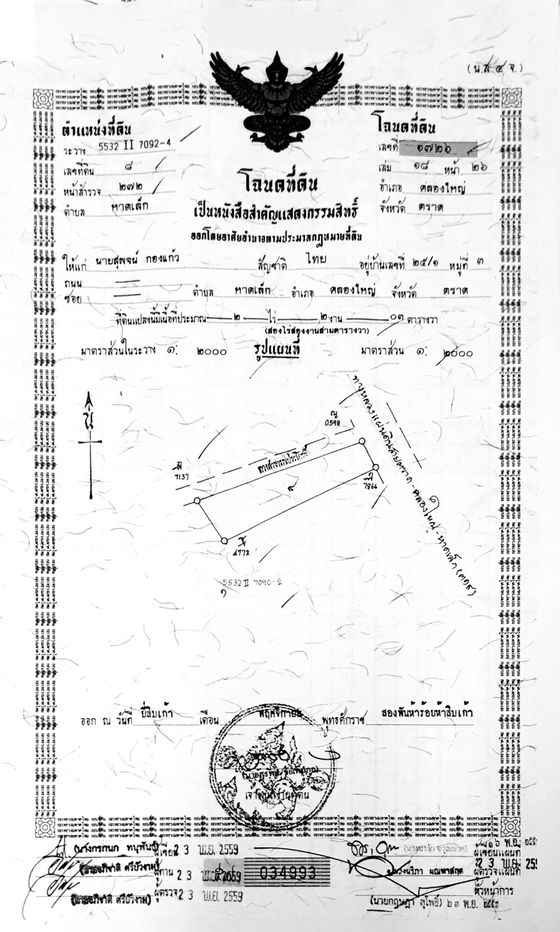 (น.ส.๔ จ.)
ตำแหน่งที่ดิน
ระวาง 5532 II 7092-4
เลขที่ดิน ๘
หน้าสำรวจ ๒๗๒
ตำบล หาดเล็ก
โฉนดที่ดิน
เลขที่ ๑๗๒๖
เล่ม ๑๘ หน้า ๒๖
อำเภอ คลองใหญ่
จังหวัด ตราด
โฉนดที่ดิน
เป็นหนังสือสำคัญแสดงกรรมสิทธิ์
ออกโดยอาศัยอำนาจตามประมวลกฎหมายที่ดิน
ให้แก่ นายสุพจน์ กองแก้ว สัญชาติ ไทย อยู่บ้านเลขที่ ๒๕/๑ หมู่ที่ ๓
ถนน
ซอย ตำบล หาดเล็ก อำเภอ คลองใหญ่ จังหวัด ตราด
ที่ดินแปลงนี้มีเนื้อที่ประมาณ ๒ ไร่ ๒ งาน ๐๓ ตารางวา
(สองไร่สองงานสามตารางวา)
มาตราส่วนในระวาง ๑: ๒๐๐๐ รูปแผนที่ มาตราส่วน ๑: ๒๐๐๐
น
ญ
0598
ทางสาธารณประโยชน์
7137
๘
7866
4772
5532 II 7090-2
ทางหลวงแผ่นดินสายตราด-คลองใหญ่-หาดเล็ก
ออก ณ วันที่ ยี่สิบเก้า เดือน พฤศจิกายน พุทธศักราช สองพันห้าร้อยห้าสิบเก้า
เจ้าพนักงานที่ดิน
2 3 พ.ย. 2559
034993
2 3 พ.ย. 2559
ผู้เขียนแผนที่
ผู้ตรวจแผนที่
หัวหน้าการ